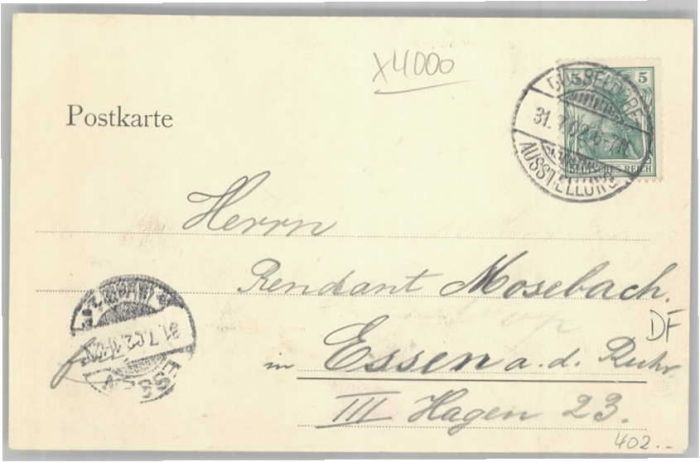 x4000
Postkarte
5 5
DÜSSELDORF
31.7.02
AUSSTELLUNG
REICH
Herrn
Rendant Mosebach.
DF
31.7.02
ESSEN
in Essen a. d. Ruhr
III Hagen 23.
402.--